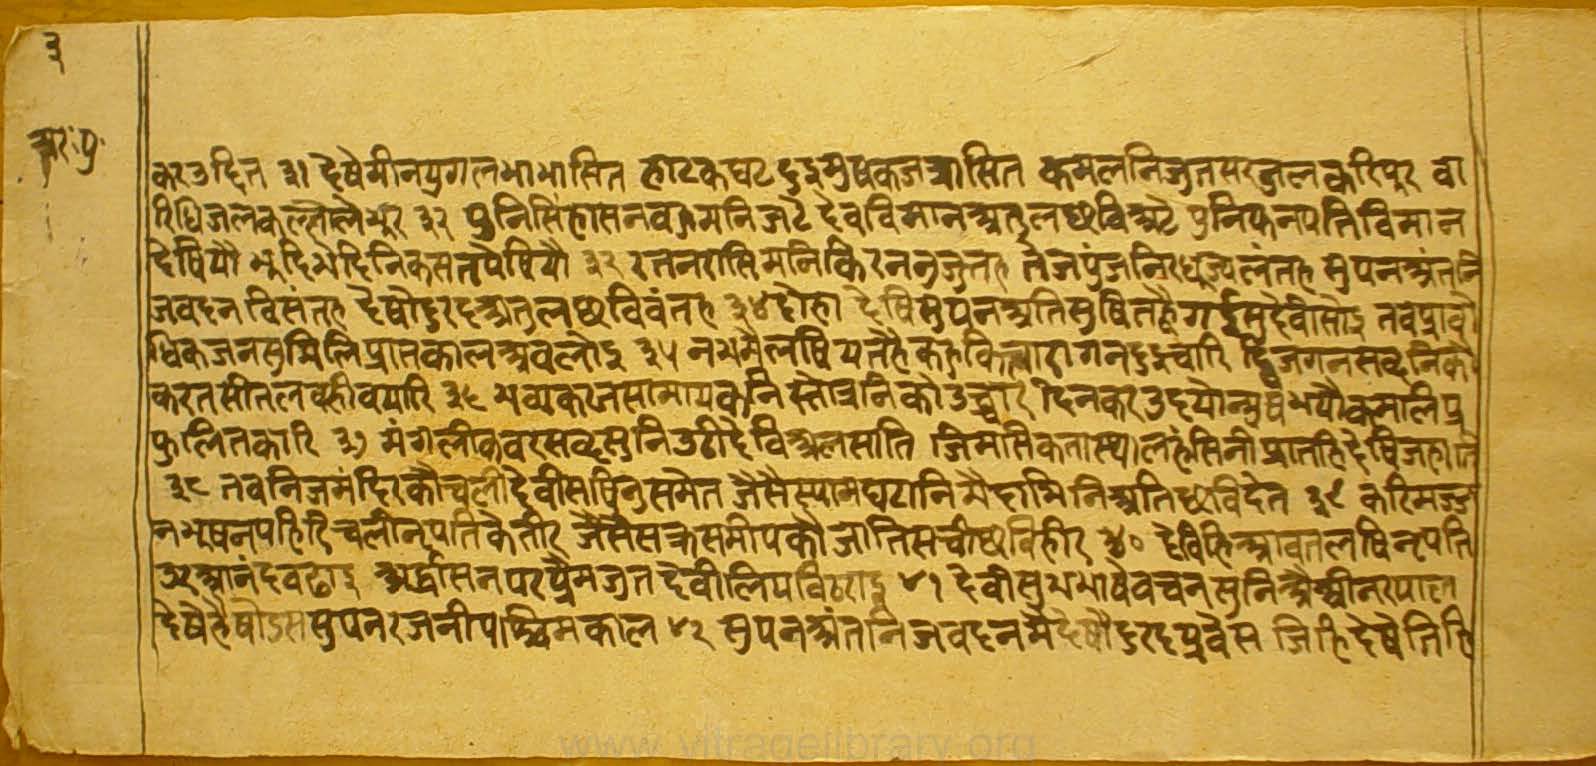 ३
कर उदित ३१ देषे मीनयुगल भाभासित हाटकघट दुइ मुष कज त्रासित कमलनिजुत सर जल करि पुर वा
रिधि जल कल्लोले भुर ३२ पुनि सिंहासन वज्रमनि जटे देव विमान अतुल छवि अटे पुनि फनपति विमान
देषियौ भुदि भेदि निकसत पेषियौ ३३ रतनरासि मनि किरननजुतह तेजपुंज निरधूम ज्वलंतह सुपन अंत नि
ज वदन विसंतह देषो दुरद अतुल छविवंतह ३४ दोहा देषि सुपन अति सुषित ह्वै गई सु देवी सोइ तवै प्रावो
धिक जन सुमिलि प्रातकाल अवलोइ ३५ नभ मै लषियत है कहु कि तारागन दुइ च्यारि द्विजगन सव्द निकौ
करत सीतल वही वयारि ३६ भव्य करन सामायकनि स्तोत्रनि को उच्चार दिनकर उदयोन्मुष भयौ कमालि प्र
फुलितकारि ३७ मंगलीक वर सव्द सुनि उठी देवि अलसाति जिम सिकतास्थल हंसिनी प्राताहि देषि जहाति
३८ तव निज मंदिर कौ चली देवी सषिनु समेत जैसै स्याम घटानि मै दामिनि अति छवि देत ३९ करि मज्ज
न भूषन पहिरि चली नृपति के तीर जैसै सक्र समीप कौ जाति सची छवि हीर ४० देविहि आवत लषि नृपति
उर आनंद वढाइ अर्द्धासन पर प्रेमजुत देवी लिय विठाइ ४१ देवी सुभ भाषै वचन सुनिऔ श्री नरपाल
देषै है षोडस सुपन रजनी पाछिम काल ४२ सुपन अंत निज वदन मै देषौ दुरद प्रवेस जिहि देषे तिहि
www.vitragelibrary.org